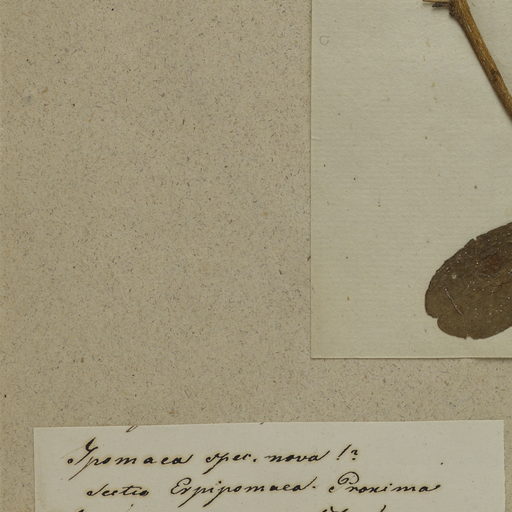 Ipomaea spec. nova 1?
Sectio Erpipomaea. Proxima